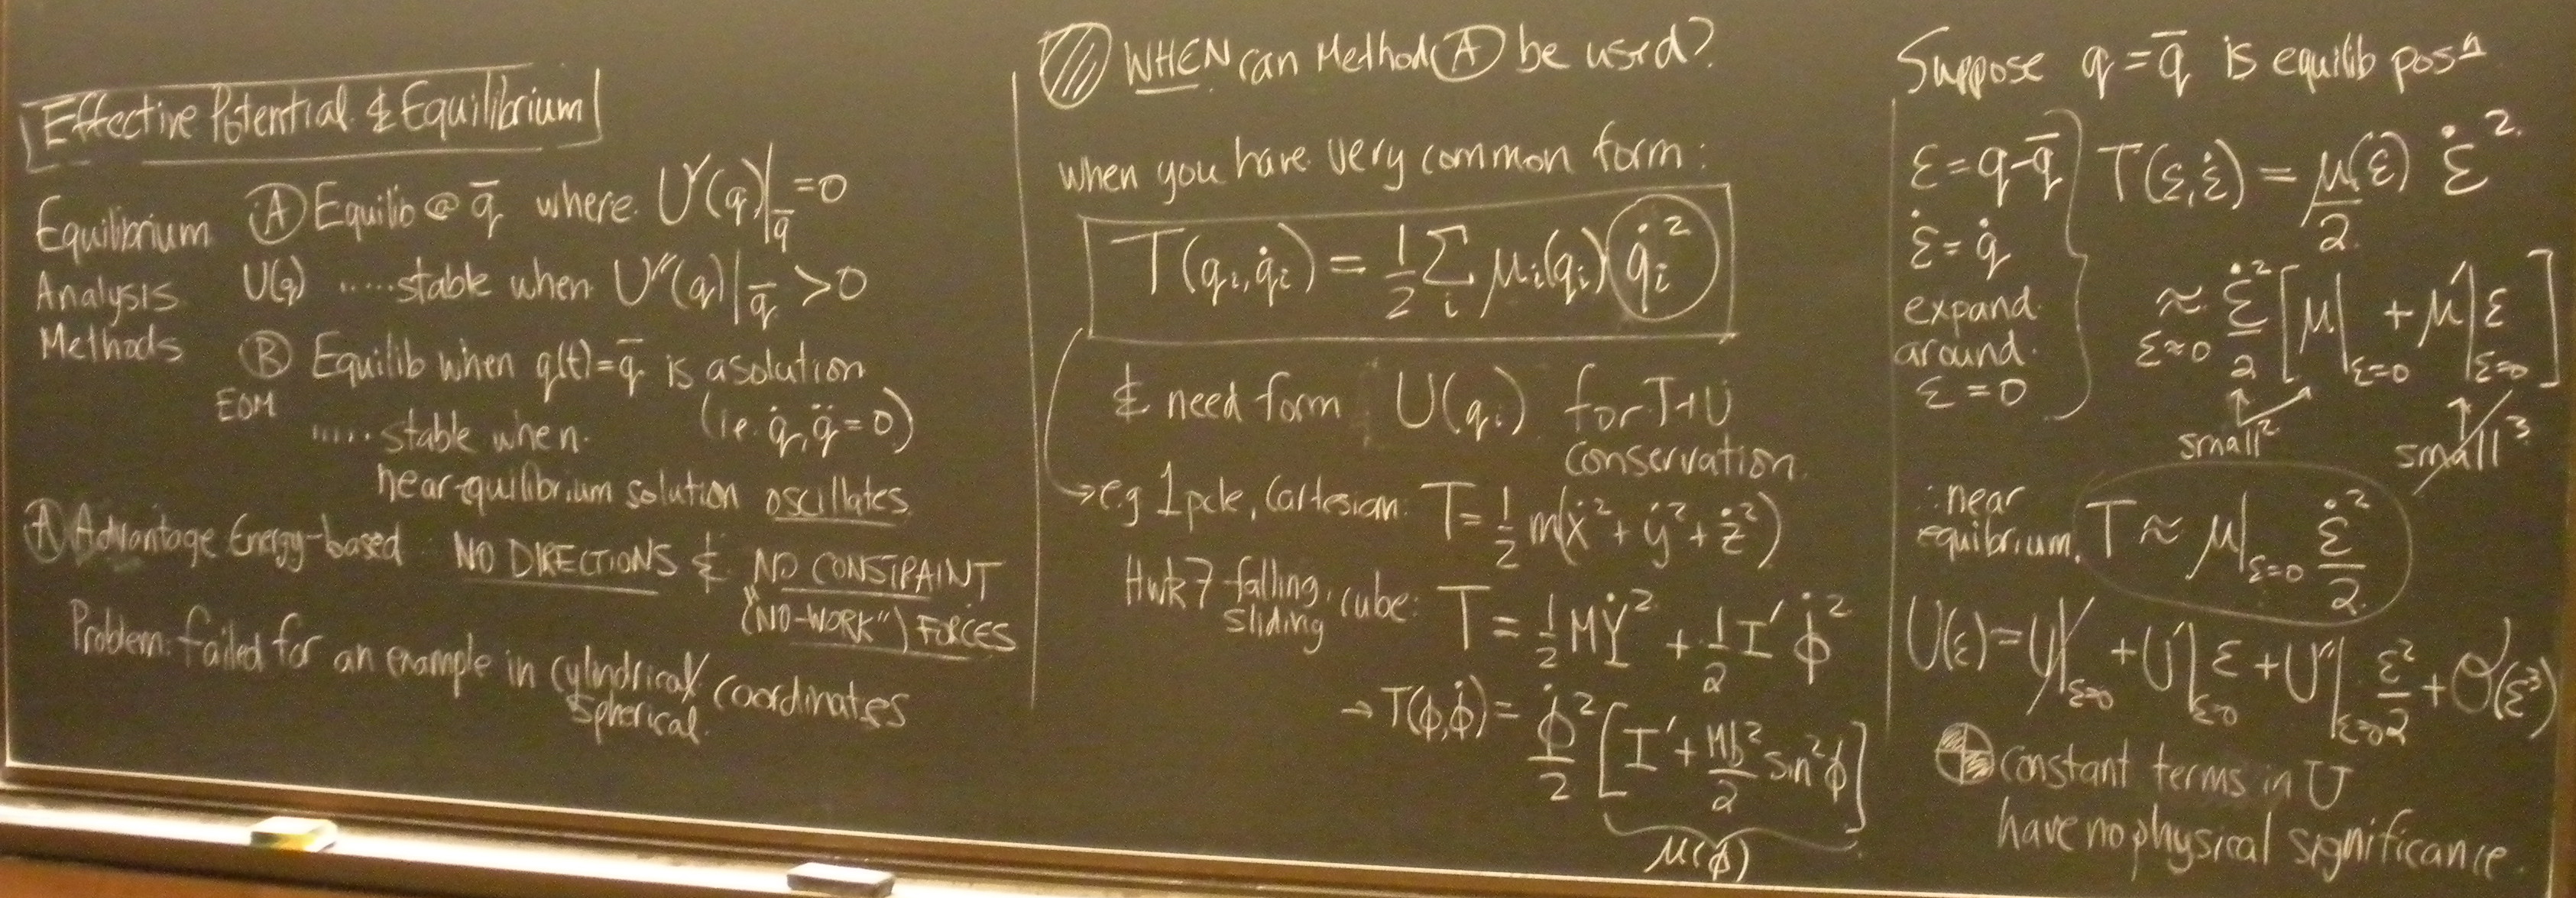 Effective Potential & Equilibrium
Equilibrium Analysis Methods
Ⓐ Equilib @ q̄ where U'(q)|_q̄ = 0
U(q) ..... stable when U''(q)|_q̄ > 0
Ⓑ Equilib when q(t) = q̄ is a solution
EOM (i.e. q̇, q̈ = 0)
..... stable when
near-equilibrium solution oscillates
Ⓐ Advantage Energy-based NO DIRECTIONS & NO CONSTRAINT
("NO-WORK") FORCES
Problem: failed for an example in cylindrical/spherical coordinates
WHEN can Method Ⓐ be used?
when you have very common form:
T(q_i, q̇_i) = 1/2 Σ_i μ_i(q_i) q̇_i²
& need form U(q_i) for T+U
conservation.
→ e.g 1 pcle, Cartesian: T = 1/2 m(ẋ² + ẏ² + ż²)
Hwk 7 falling, sliding cube: T = 1/2 MẎ² + 1/2 I' φ̇²
→ T(φ,φ̇) = φ̇²/2 [I' + Mb²/2 sin²φ]
μ(φ)
Suppose q = q̄ is equilib posⁿ
ε = q - q̄
ε̇ = q̇
expand
around
ε = 0
T(ε,ε̇) = μ(ε)/2 ε̇²
≈_{ε≈0} ε̇²/2 [μ|_{ε=0} + μ'|_{ε=0} ε]
small² small³
∴ near
equibrium, T ≈ μ|_{ε=0} ε̇²/2
U(ε) = U|_{ε=0} + U'|_{ε=0} ε + U''|_{ε=0} ε²/2 + O(ε³)
constant terms in U
have no physical significance.